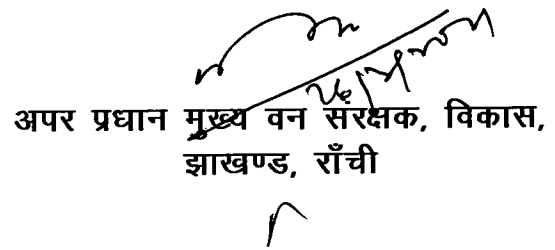 अपर प्रधान मुख्य वन संरक्षक, विकास,
झाखण्ड, राँची